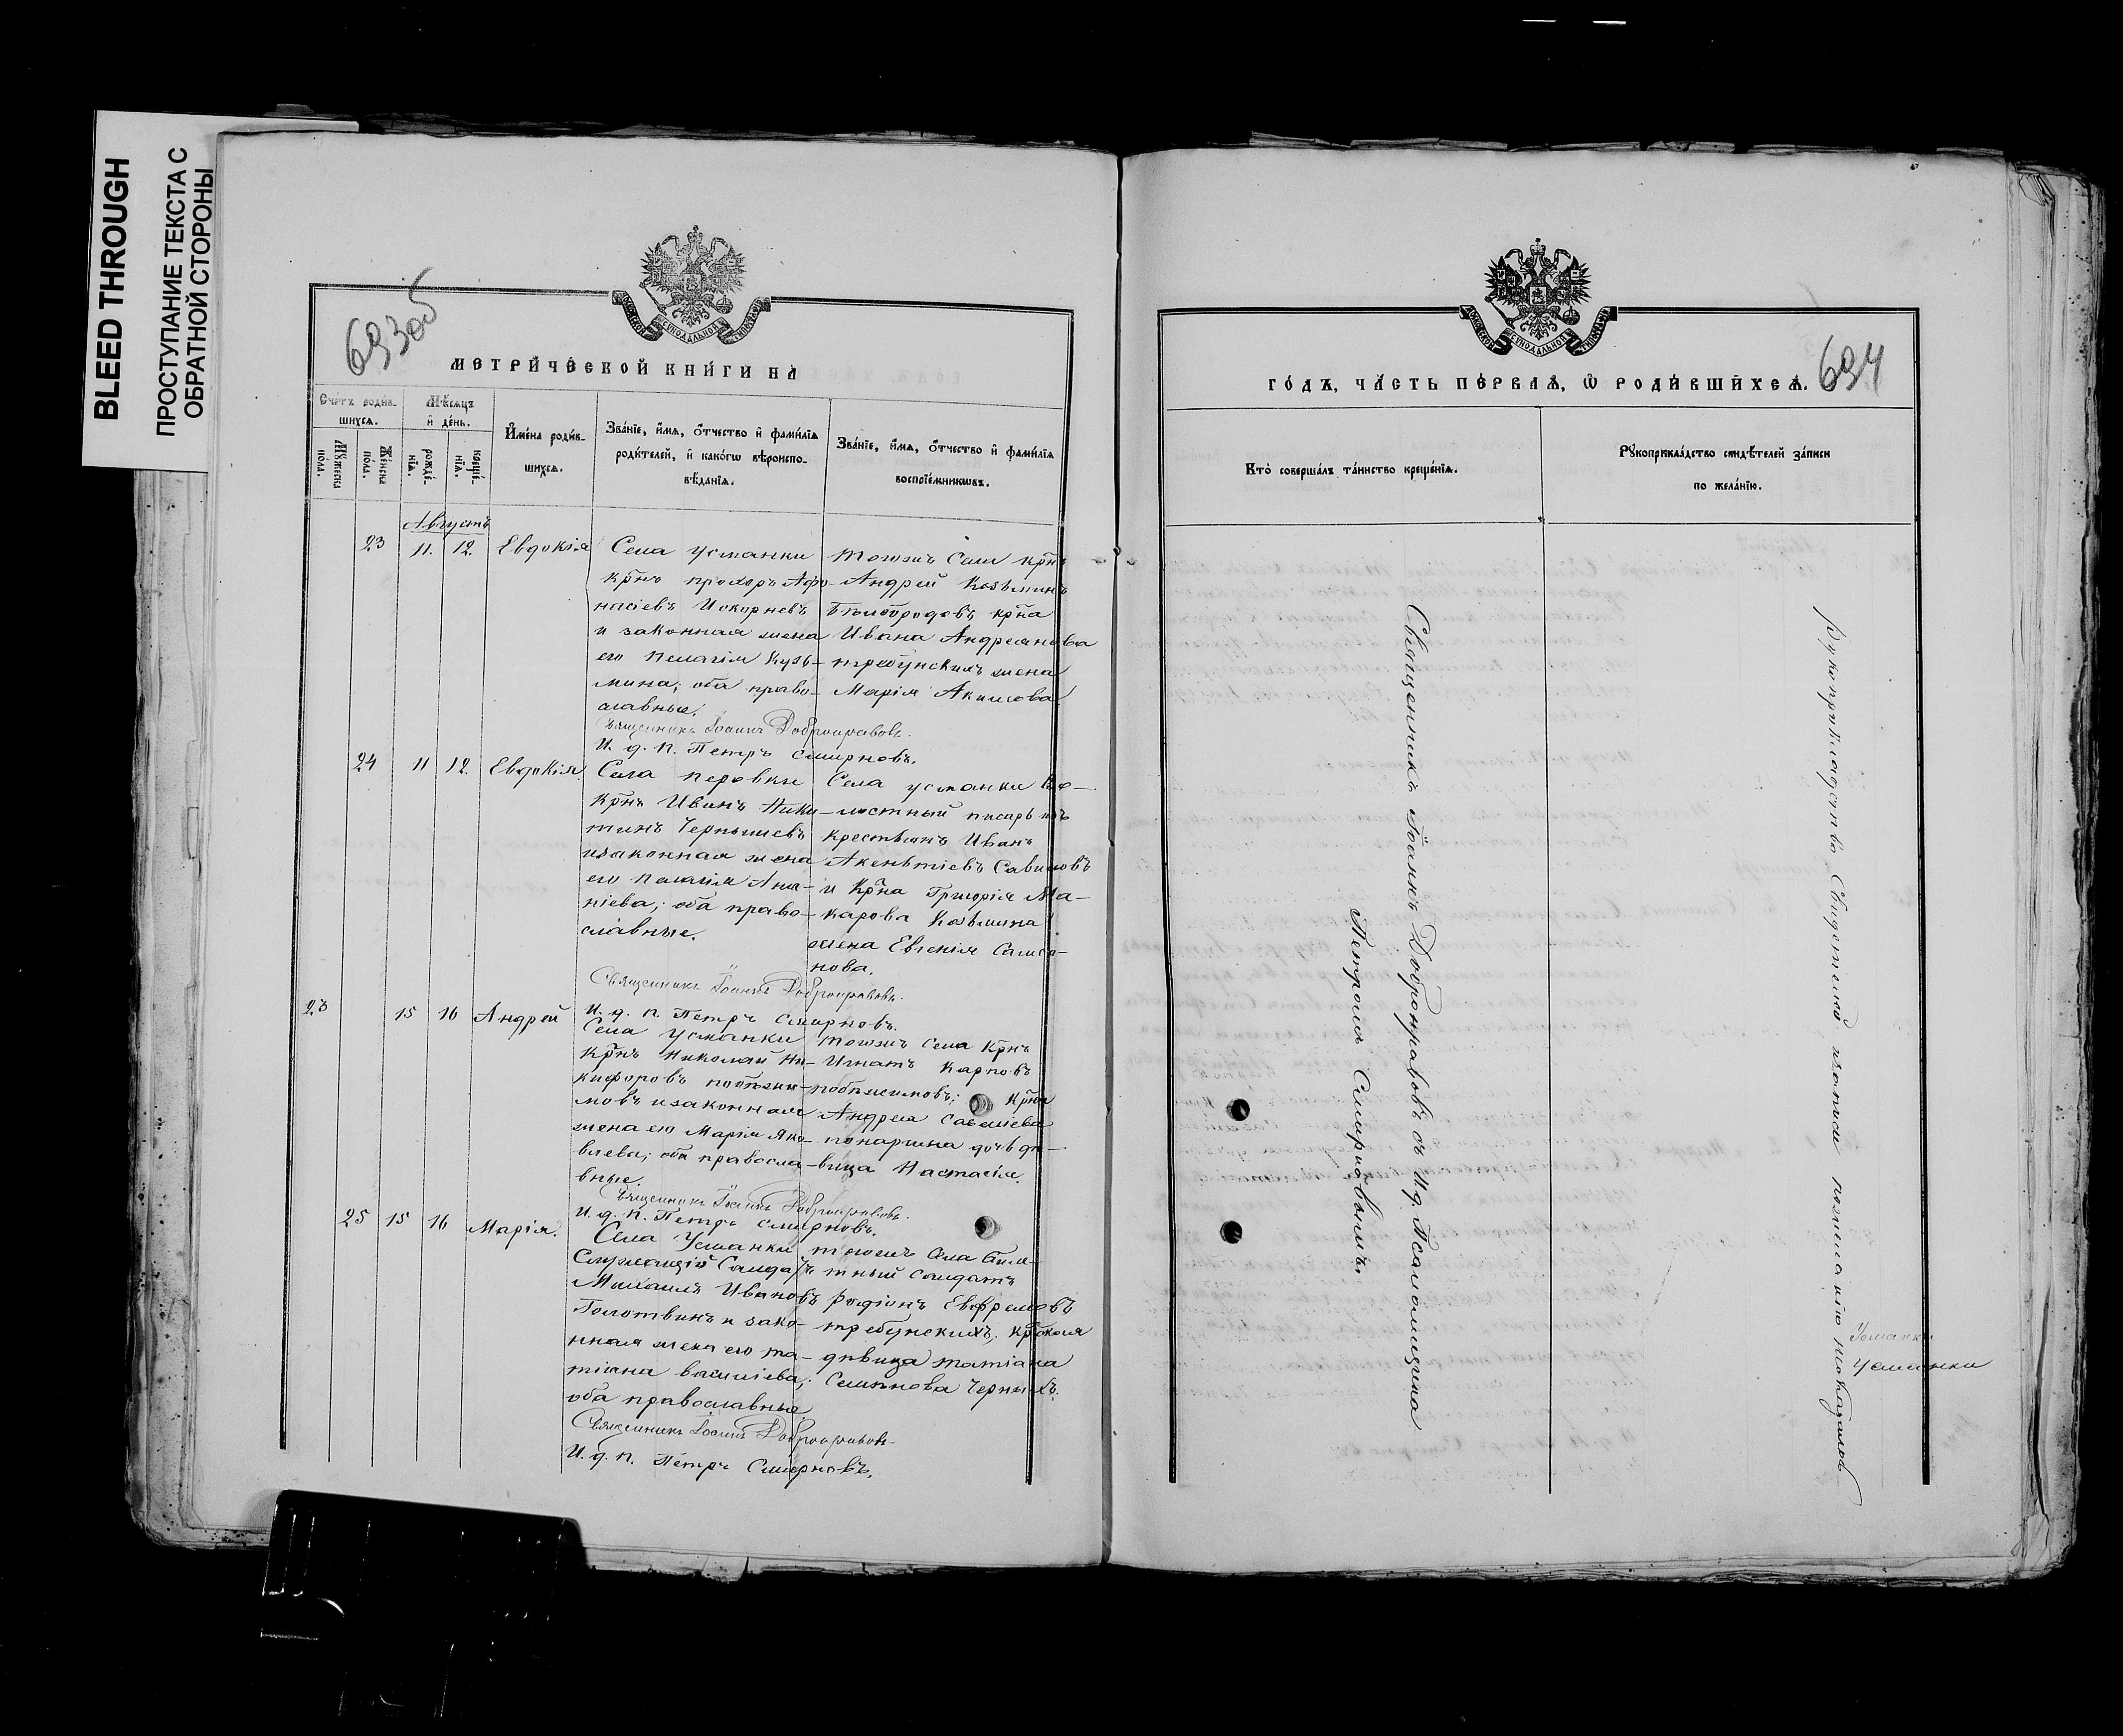 BLEED THROUGH
ПРОСТУПАНИЕ ТЕКСТА С
ОБРАТНОЙ СТОРОНЫ
693об
МЕТРИ́ЧЕСКОЙ КНИ́ГИ НА̀
Сче́тъ роди́в-
шихсѧ.
Мꙋ́жеска
по́ла.
Же́нска
по́ла.
Мѣ́сѧцъ
и҆ де́нь.
рожде́-
нїѧ.
креще́-
нїѧ.
И҆мена̀ роди́в-
шихсѧ.
Зва́нїе, и҆́мѧ, ѻ҆́тчество и҆ фами́лїѧ
роди́телей, и҆ како́гѡ вѣроиспо-
вѣ́данїѧ.
Зва́нїе, и҆́мѧ, ѻ҆́тчество и҆ фами́лїѧ
воспрїе́мникѡвъ.
Августъ
23 11. 12. Евдокія
Села Усманки
крнъ Прохоръ Афо-
насіевъ Искорневъ
и законная жена
его Пелагія Кузь-
мина; оба право-
славные.
Тогожъ Села крнъ
Андрей Козьминъ
Бѣлобородовъ крна
Ивана Андреянова
Требунскихъ жена
Марія Акимова
Священникъ Іоаннъ Добронравовъ.
И. д. п. Петръ Смирновъ.
24 11 12. Евдокія
Села Перовки
крнъ Иванъ Ники-
тинъ Чернышевъ
и законная жена
его Пелагія Ана-
ніева; оба право-
славные.
Села Усманки Во-
лостный писарь изъ
крестьянъ Иванъ
Акентіевъ Савиновъ
и Крна Григорія Ма-
карова Козьмина
жена Евгенія Самсо-
нова.
Священникъ Іоаннъ Добронравовъ.
И. д. п. Петръ Смирновъ.
23 15 16 Андрей
Села Усманки
крнъ Николай Ни-
кифоровъ Побѣжи-
мовъ и законная
жена его Марія Яко-
влева; оба правосла-
вные.
Тогожъ Села Крнъ
Игнатъ Карповъ
Побѣжимовъ; Крна
Андрея Савеліева
Понарина дочь дѣ-
вица Настасія.
Священникъ Іоаннъ Добронравовъ.
И. д. п. Петръ Смирновъ.
25 15 16 Марія.
Села Усманки
Служащій Солдатъ
Михаилъ Ивановъ
Голотвинъ и зако-
нная жена его Та-
тіана Василіева;
оба православные
Тогожъ Села Биле-
тный Солдатъ
Родіонъ Евфремовъ
Требунскихъ; кртская
дѣвица Татіана
Семенова Черныхъ.
Священникъ Іоаннъ Добронравовъ
И. д. п. Петръ Смирновъ.
694
ГО́ДЪ, ЧА́СТЬ ПЕ́РВАѦ, Ѡ҆ РОДИ́ВШИХСѦ.
Кто̀ соверша́лъ та́инство креще́нїѧ.
Рꙋкоприкла́дство свидѣ́телей за́писи
по жела́нїю.
Священникъ Іоаннъ Добронравовъ съ И. д. Псаломщика
Петромъ Смирновымъ.
Рукоприкладство Свидетелей записи по желанію
Усманки
Усманки